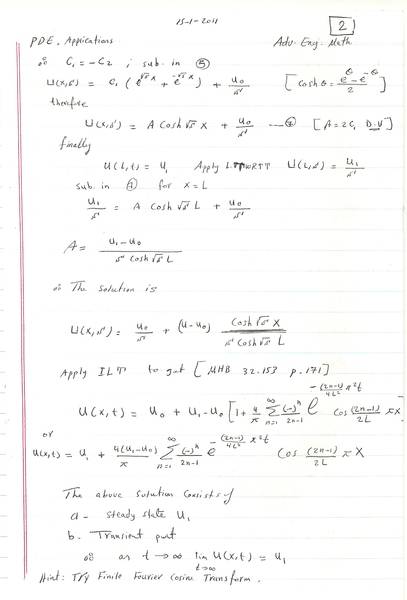 15-1-2011
2
PDE. Applications Adv. Eng. Math
∴ C₁ = -C₂ ; sub. in ⑤
U(x,s) = C₁ (e^{√s x} + e^{-√s x}) + u₀/s [cosh θ = (e^θ - e^{-θ})/2]
therefore
U(x,s) = A Cosh √s x + u₀/s [A = 2C₁
finally
U(L,t) = u₁ Apply L.T WRTT U(L,s) = u₁/s
sub. in for x = L
u₁/s = A Cosh √s L + u₀/s
A = (u₁ - u₀)/(s Cosh √s L)
∴ The solution is
U(x,s) = u₀/s + (u - u₀) (Cosh √s x)/(s Cosh √s L)
Apply ILT to get [MHB 32.153 p.171]
U(x,t) = u₀ + u₁-u₀ [1 + 4/π Σ_{n=1}^{∞} (-)ⁿ/(2n-1) e^{-(2n-1)/4L² π²t} cos (2n-1)/2L πx
or
u(x,t) = u₁ + 4(u₁-u₀)/π Σ_{n=1}^{∞} (-)ⁿ/(2n-1) e^{-(2n-1)/4L² π²t} Cos (2n-1)/2L πx
The above solution consists of
a - steady state u₁
b. Transient part
∴ as t → ∞ lim_{t→∞} U(x,t) = u₁
Hint: Try Finite Fourier Cosine Transform.